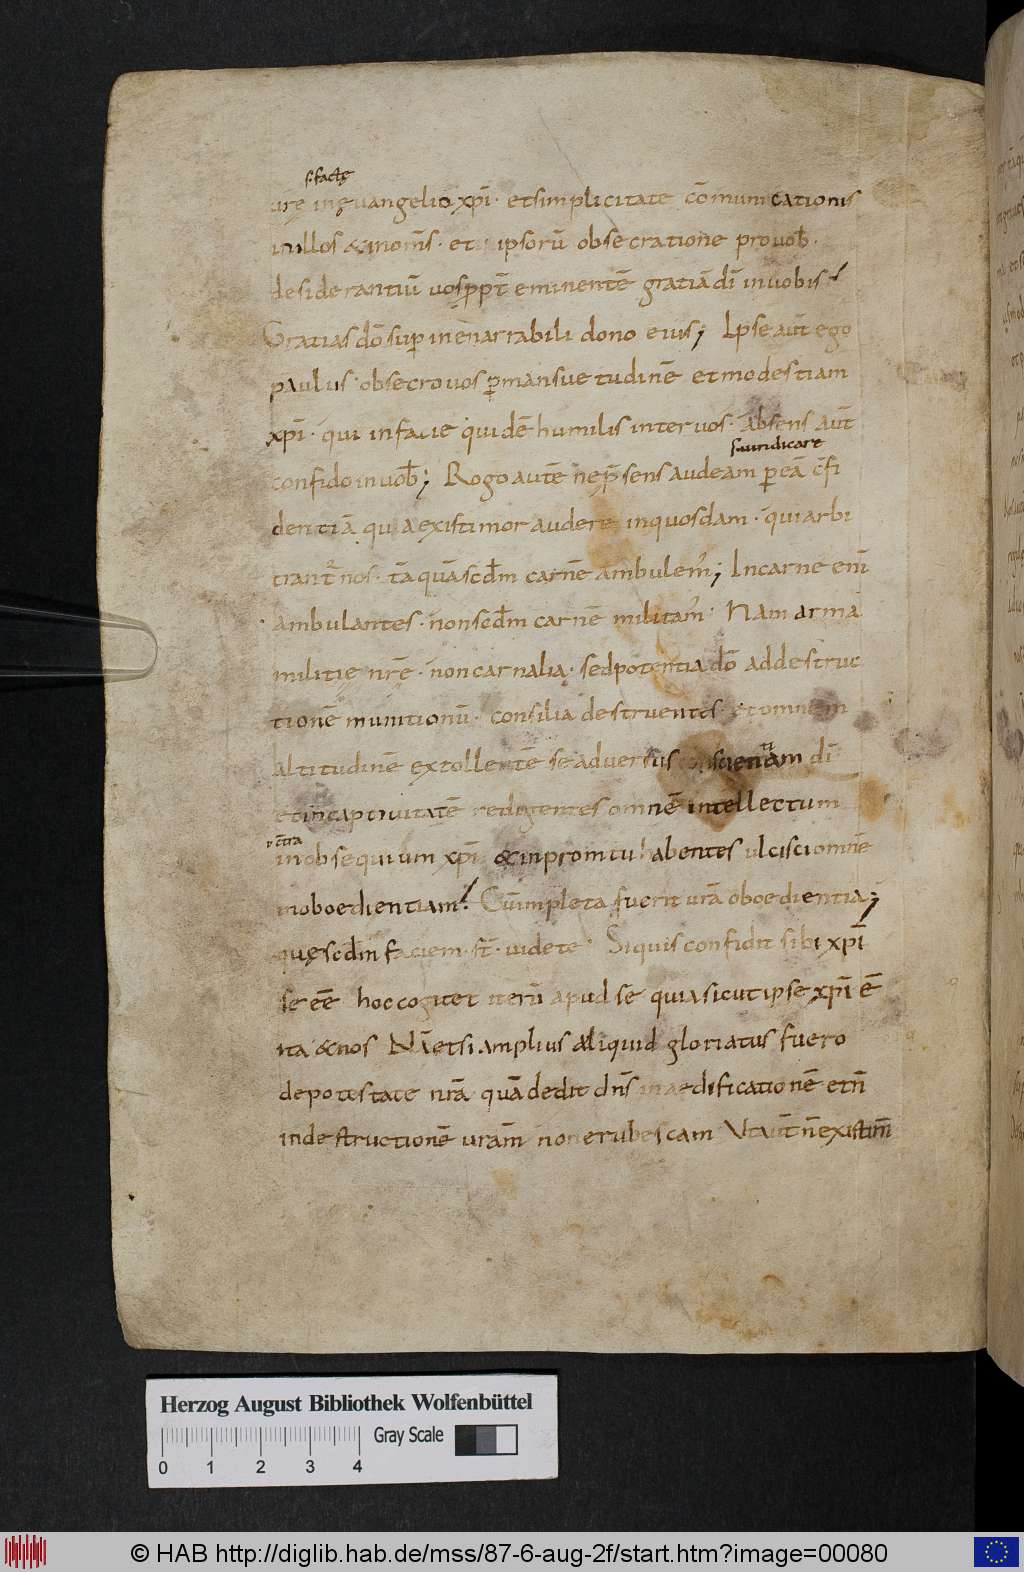 s. factę
urę in ęvangelio xp̄i · et simplicitate cōmunicationis
in illos & in om̄s · et ipsorū obsecratione pro vob̄ ·
desiderantiū vos ꝓpt̄ eminentē gratiā dī in vobis ·
Gratias dō sup̄ inenarrabili dono eius ; Ipse aūt ego
paulus obsecro vos ꝑ mansuetudinē et modestiam
xp̄i · qui in facie quidē humilis inter vos · absens aūt
s. iuridicare
confido in vob̄ ; Rogo autē ne p̄sens audeam ꝑ eā c̄fi
dentiā qua existimor audere in quosdam · qui arbi
trant᷑ nos · tāquā scdm̄ carnē ambulem᷒ ; In carne enī
ambulantes · non scdm̄ carnē militam᷒ · Nam arma
militię nr̄ę · non carnalia · sed potentia dō ad destruc
tionē munitionū · consilia destruentes · et omnem
altitudinē extollentē se adversus scientiam dī
et in captivitatē redigentes omnē intellectum
c̄tra
in obsequium xp̄i & in promtu habentes ulcisci omnē
inoboedientiam · Cū impleta fuerit vr̄a oboedientia ;
quę scdm̄ faciem · st̄ · videte · Siquis confidit sibi xp̄i
se eē hoc cogitet iterū apud se quia sicut ipse xp̄i ē
ita & nos Nā etsi amplius aliquid gloriatus fuero
de potestate nr̄a quā dedit dn̄s in aedificationē et n̄
in destructionē vr̄am non erubescam Ut aūt n̄ existim̄
Herzog August Bibliothek Wolfenbüttel
Gray Scale
0 1 2 3 4
© HAB http://diglib.hab.de/mss/87-6-aug-2f/start.htm?image=00080